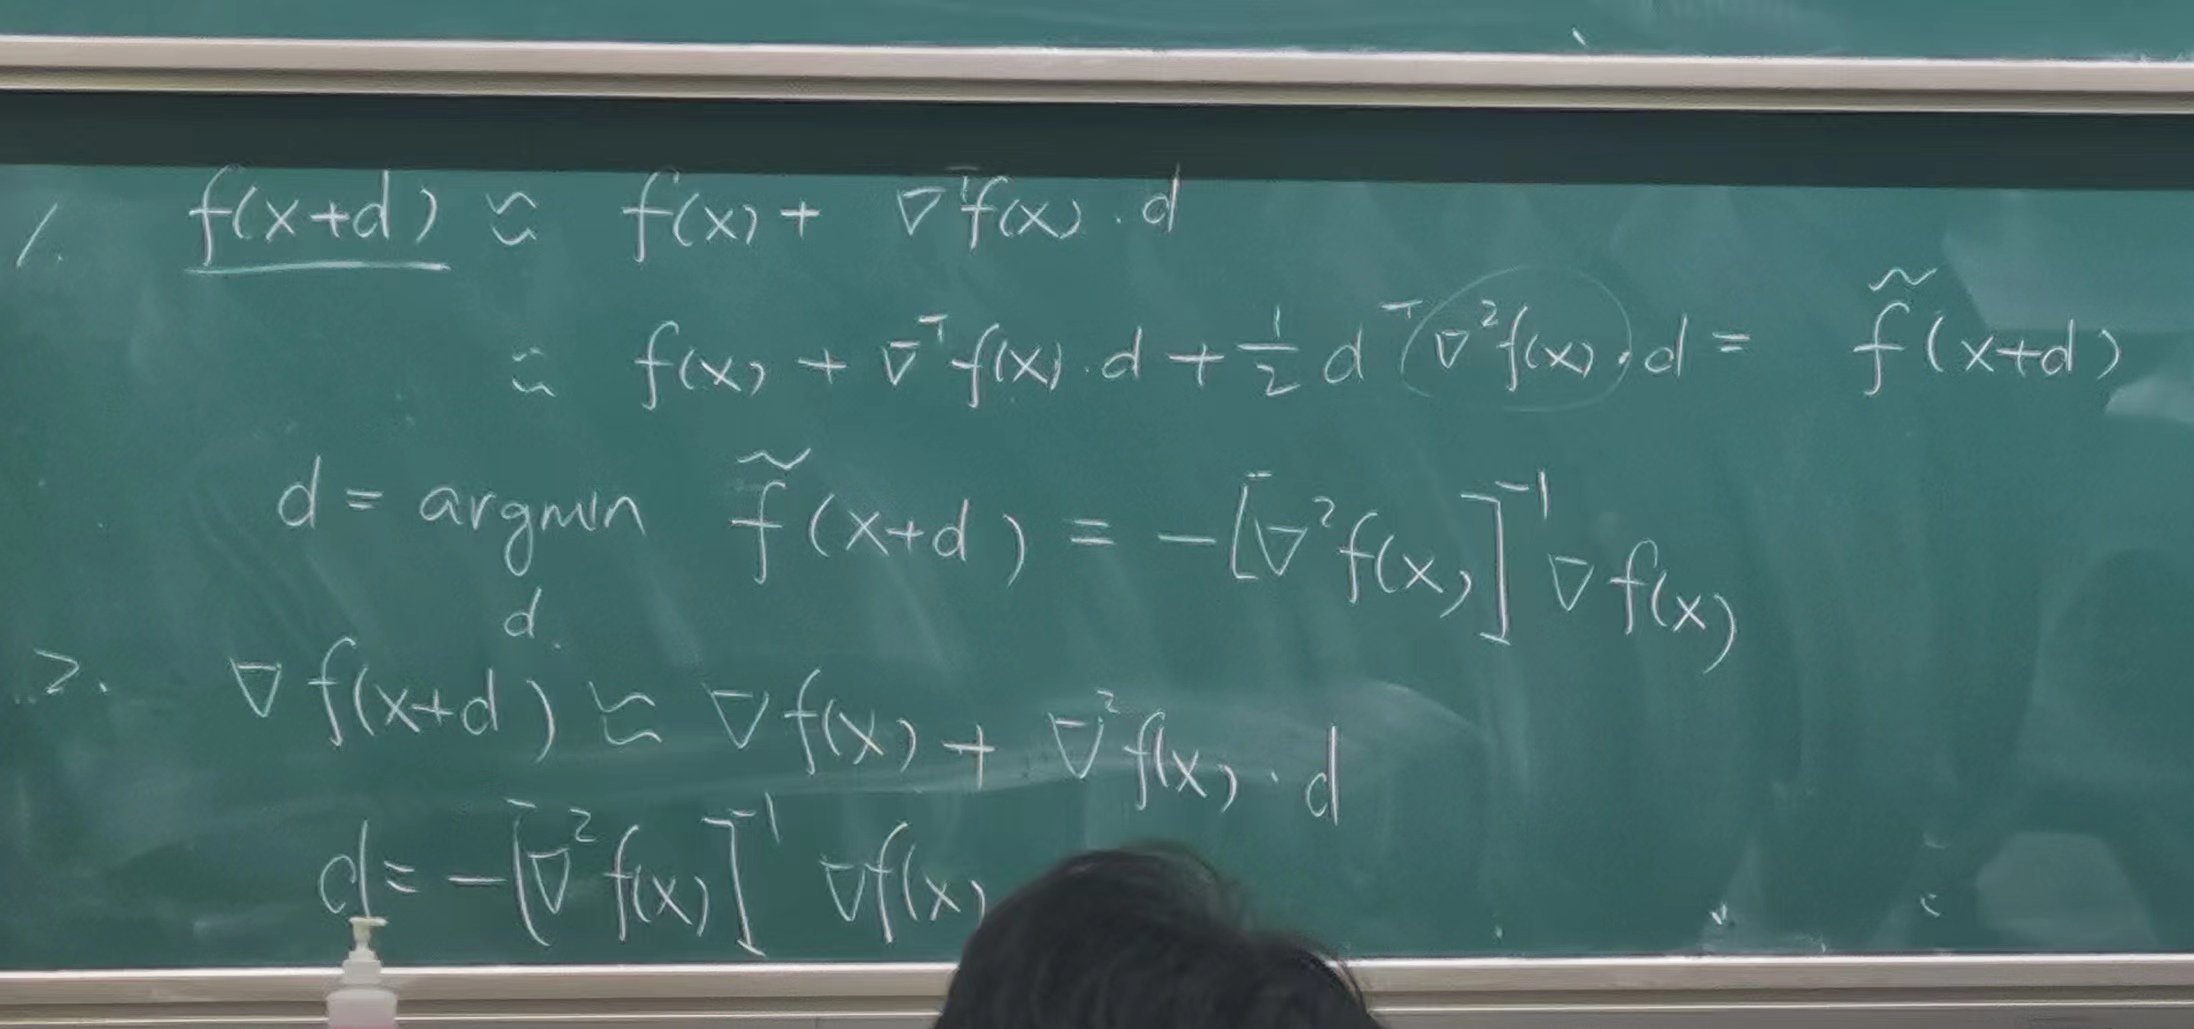 1. f(x+d) ≈ f(x) + ∇ᵀf(x)·d
≈ f(x) + ∇ᵀf(x)·d + 1/2 dᵀ∇²f(x)·d = f̃(x+d)
d = argmin f̃(x+d) = -[∇²f(x)]⁻¹∇f(x)
d.
2. ∇f(x+d) ≈ ∇f(x) + ∇²f(x)·d
d = -[∇²f(x)]⁻¹ ∇f(x)